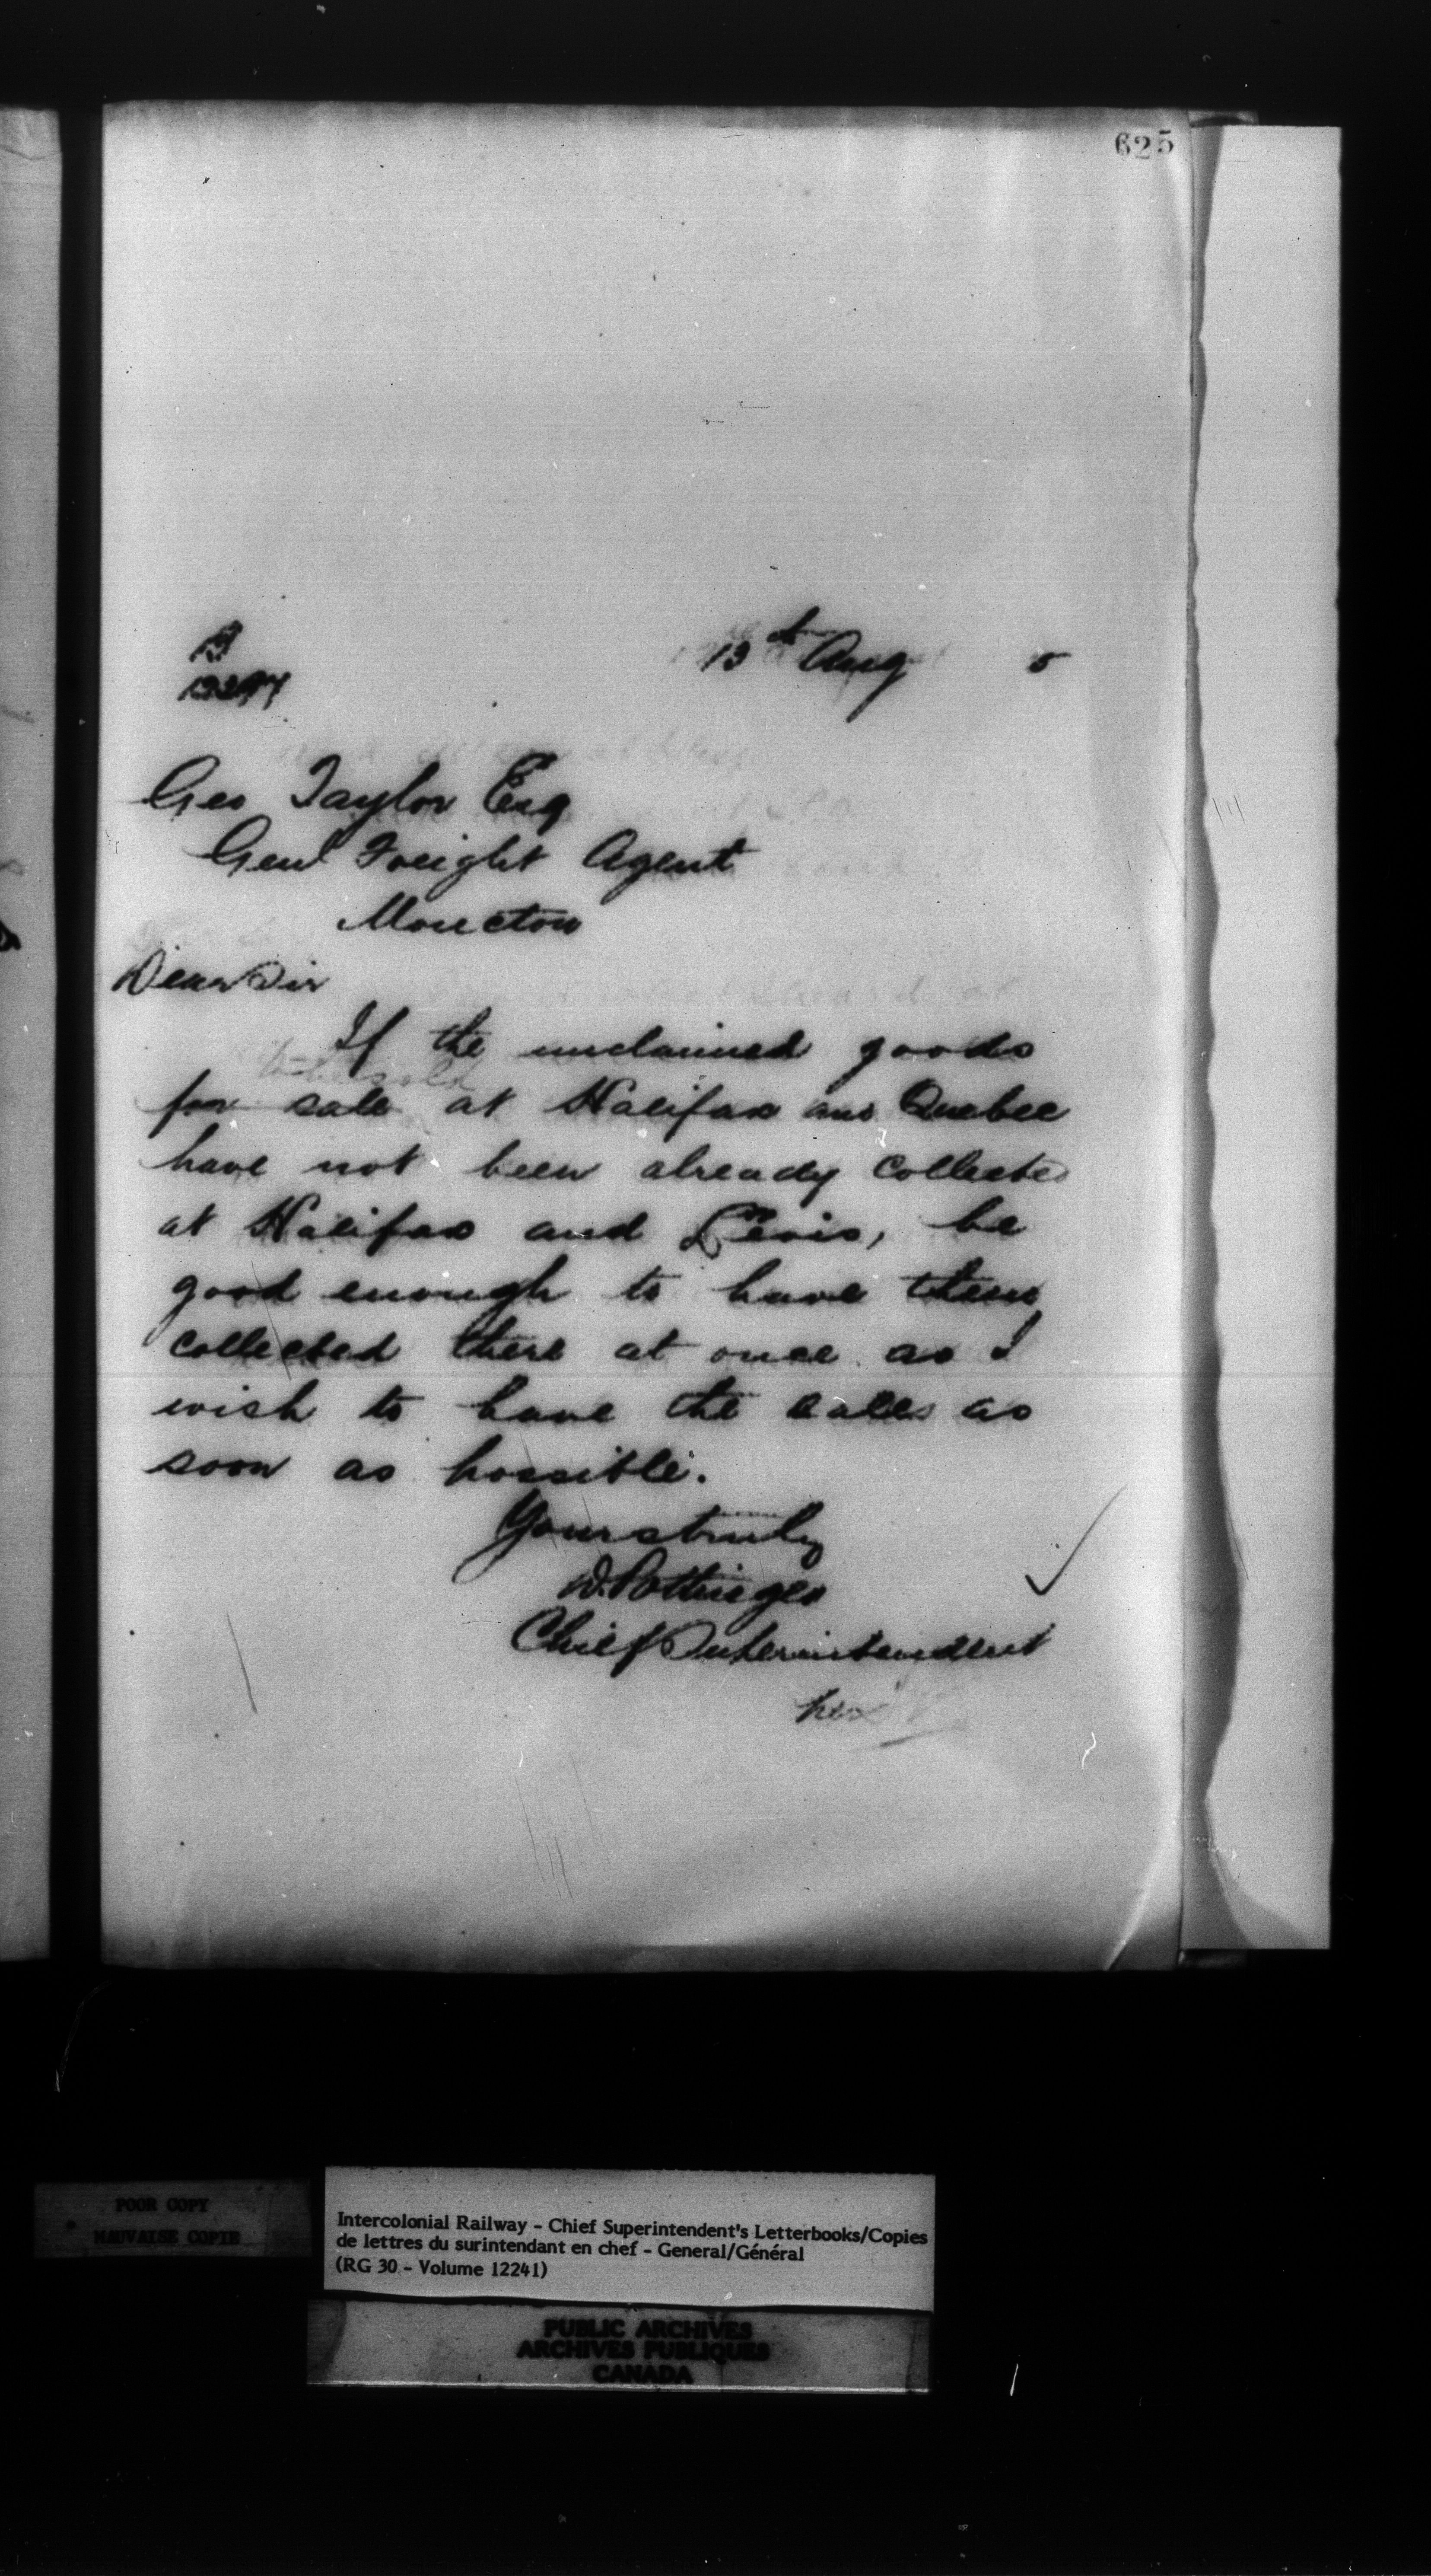 625
13th Aug 5
Geo Taylor Esq
Genl Freight Agent
Moncton
Dear Sir
If the unclaimed goods
to be sold
for sale at Halifax and Quebec
have not been already collected
at Halifax and Levis, be
good enough to have them
collected there at once as I
wish to have the sales as
soon as possible.
Yours truly
D. Pottinger
Chief Superintendent
POOR COPY
MAUVAISE COPIE
Intercolonial Railway - Chief Superintendent's Letterbooks/Copies
de lettres du surintendant en chef - General/Général
(RG 30 - Volume 12241)
PUBLIC ARCHIVES
ARCHIVES PUBLIQUES
CANADA